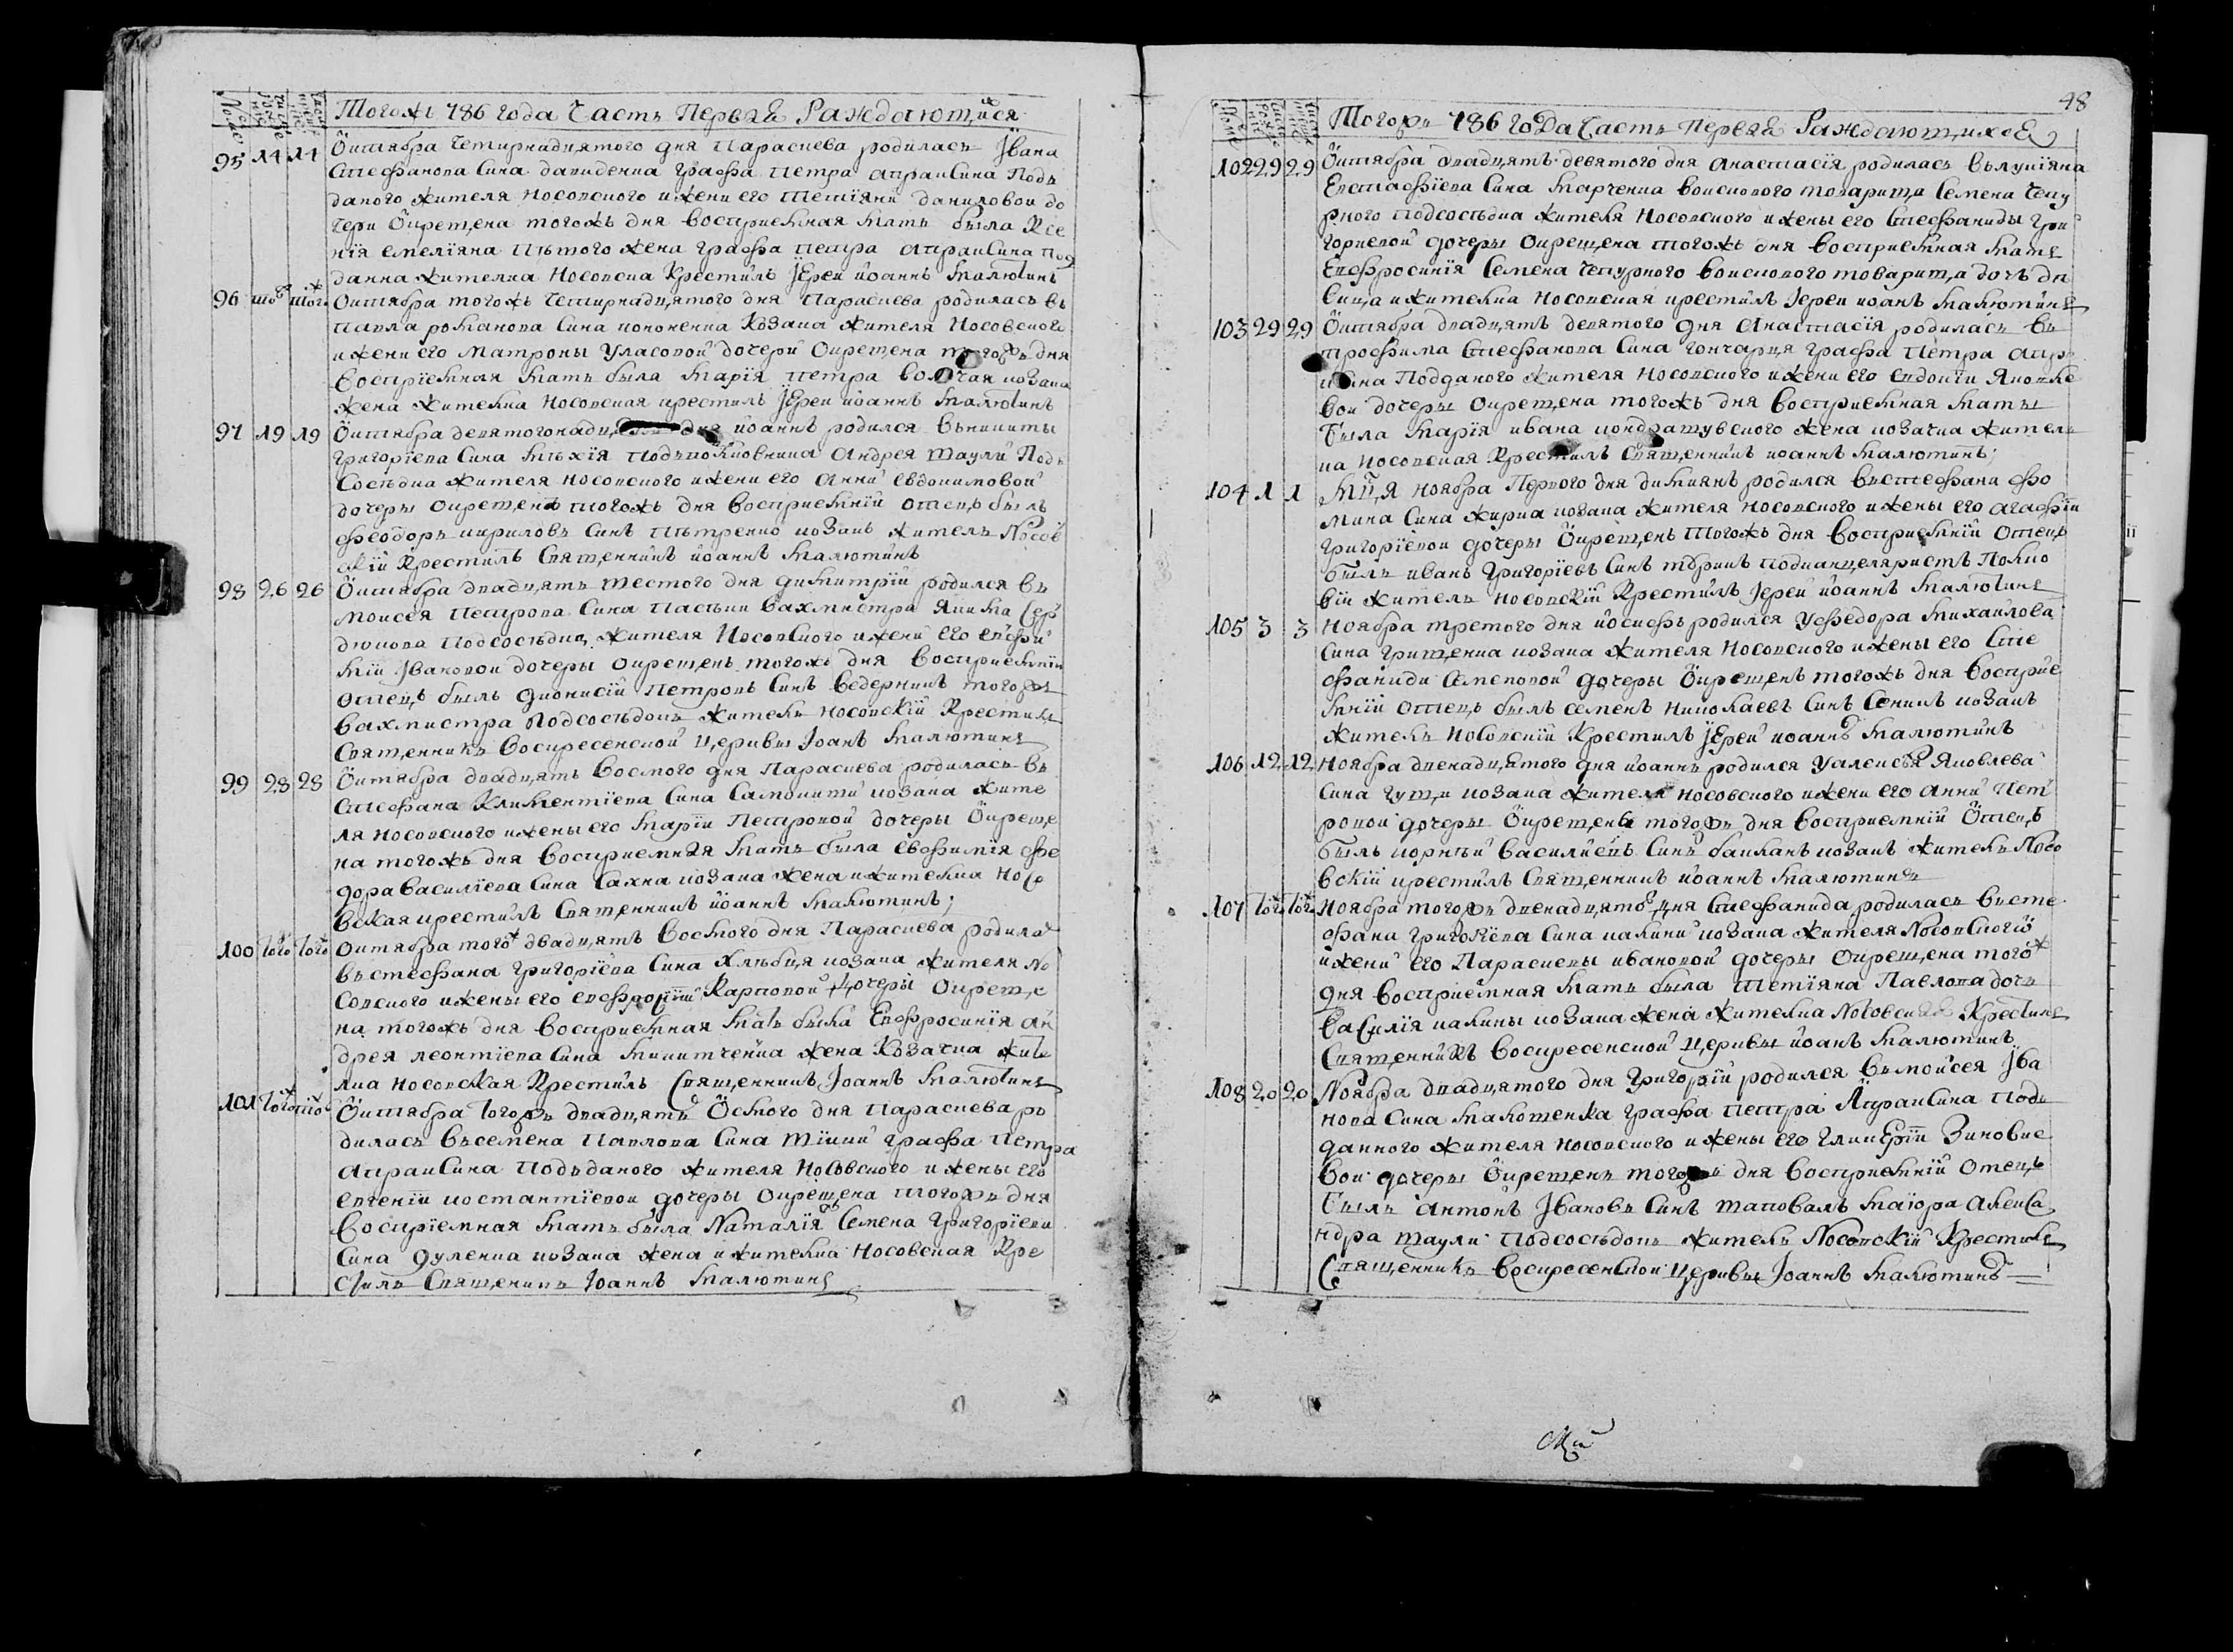 Тогожъ 786 года Часть Первая Раждающихся
95 14 14 Октября четирнадцятого дня Параскева родилась Ївана
Стефанова Сина давиденка графа Петра апраксина Подъ
даного жителя Носовского и жени его Тетїяни даниловои до
чери Окрещена тогожъ дня восприемная мать была Ксе
нїя емелїяна жена графа петра апраксина под
данка жителка Носовска Крестилъ Їерей йоаннъ малютинъ
96 Октября тогожъ четирнадцятого дня Параскева родилась въ
павла романова Сина кононенка Козака жителя Носовского
и жени его Матроны Уласовой дочерй Окрещена тогожъ дня
воспрїемная мать была марїя петра козака
жена жителка Носовская крестилъ Їерей йоаннъ малютинъ
97 19 19 Октября девятогонадц. дня йоаннъ родился въникиты
григорїева Сина подъполковника Андрея шаули Подъ
Сосѣдка жителя носовского и жени его Анни евдокимовой
дочеры Окрещенъ тогожъ дня восприемнїй отецъ былъ
феодоръ кириловъ Синъ Пѣтренко козакъ жителъ Носов
скїй Крестилъ Священникъ йоаннъ малютинъ
98 26 26 Октября двадцять шестого дня димитрїй родился въ
Моисея Петрова Сина вахмистра Якима Сер
дюкова подсосѣдка жителя Носовского и жени его евфи
мїи Івановои дочеры окрещенъ тогожъ дня восприемнїй
отецъ былъ дионисїй Петровъ Синъ ведерникъ тогожъ
вахмистра Подсосѣдокъ жителъ носовскїй Крестилъ
Священникъ воскресенской церквы Іоанъ малютинъ
99 28 28 Октября двадцять восмого дня Параскева родилась въ
Стефана Климентїева Сина Самокиши козака жите
ля носовского и жены его марїи Петровой дочеры Окреще
на тогожъ дня восприемная мать была евфимїя фе
дора василїева Сина Сахна козака жена и жителка Носо
вская крестилъ Священникъ йоаннъ малютинъ;
100 того того октября тогож двадцять восмого дня Параскева родилас
въстефана григорїева Сина Хлѣбця козака жителя Но
совского и жены его евфросїнїи Карповой дочеры Окреще
на тогожъ дня восприемная мать была Евфросинїя ан
дрея леонтїева Сина микитченка жена Козачка жите
лка носовская Крестилъ Священникъ Іоаннъ малютинъ
101 Октября тогожъ двадцять осмого дня параскева ро
дилась въсемена Павлова Сина графа петра
апраксина подъданого жителя Носовского и жены его
евгенїи костантїевои дочеры окрещена тогожъ дня
воспрїемная мать была Наталїя Семена григорїева
Сина дуленка козака жена и жителка Носовская Кре
стилъ Священикъ Іоаннъ малютинъ
48
Тогожъ 786 года Часть первая Раждающихся
102 29 29 Октября двадцять девятого дня анастасїя родилась въ лукїяна
Евстафїева Сина марченка воискового товарища Семена чепу
рного подсосѣдка жителя Носовского и жены его Стефаниды гри
горїевой дочеры окрещена тогожъ дня восприемная мать
Евфросинїя Семена чепурного воискового товарища дочъ дѣ
вица и жителка Носовская крестилъ Іереи иоанъ малютинъ
103 29 29 Октября двадцять девятого дня Анастасїя родилась въ
трофима Стефанова Сина гончарця графа Петра апра
ксина Подданого жителя Носовского и жени его евдокїи Яковле
вои дочеры окрещена тогожъ дня восприемная маты
была марїя ивана жена козачка жител
ка Носовская Крестилъ Священникъ иоаннъ малютинъ;
104 1 1 Мця Ноября Первого дня дамианъ родился въстефана фо
мина Сина жирка козака жителя носовского и жены его агафїи
григорїевои дочеры Окрещенъ тогожъ дня восприемнїй отецъ
былъ иванъ григорїевъ Синъ подканцеляристъ Полко
вїи жителъ носовскїй Крестилъ Іереи йоаннъ малютинъ
105 3 3 Ноября третого дня йосифъ родился Уфедора михаилова
Сина грищенка козака жителя носовского и жены его Сте
фаниди Семеновой дочеры Окрещенъ тогожъ дня воспрїе
мнїй отецъ былъ семенъ николаевъ Синъ козакъ
жителъ носовскїй крестилъ Їерей иоаннъ малютинъ
106 12 12 Ноября двенадцятого дня йоаннъ родился Уалексѣя Яковлева
Сина козака жителя носовского и жени его анни Пет
ровои дочеры Окрещенъ тогожъ дня восприемнїй Отецъ
былъ корнѣй василїевъ Синъ козакъ жителъ Носо
вскїй крестилъ Священникъ йоаннъ малютинъ
107 Ноября тогожъ двенадцятого дня Стефанида родилась въсте
фана григорїева Сина калини козака жителя Носовского
и жени его Параскевы ивановой дочеры окрещена тогож
дня восприемная мать была тетїяна Павлова дочъ
василїя калины козака жена жителка Носовская Крестилъ
Священникъ воскресенской церквы йоанъ малютинъ
108 20 20 Ноября двадцятого дня григорїй родился въмойсея Їва
нова Сина малюшенка графа петра Апраксина Подъ
данного жителя носовского и жены его гликерїи Зиновїе
вои дочеры Окрещенъ тогожъ дня восприемнїй отецъ
былъ антонъ Івановъ Синъ шаповалъ маїора алекса
ндра шаули подсосѣдокъ жителъ Носовскїй Крестилъ
Священникъ воскресенской церквы Іоаннъ малютинъ